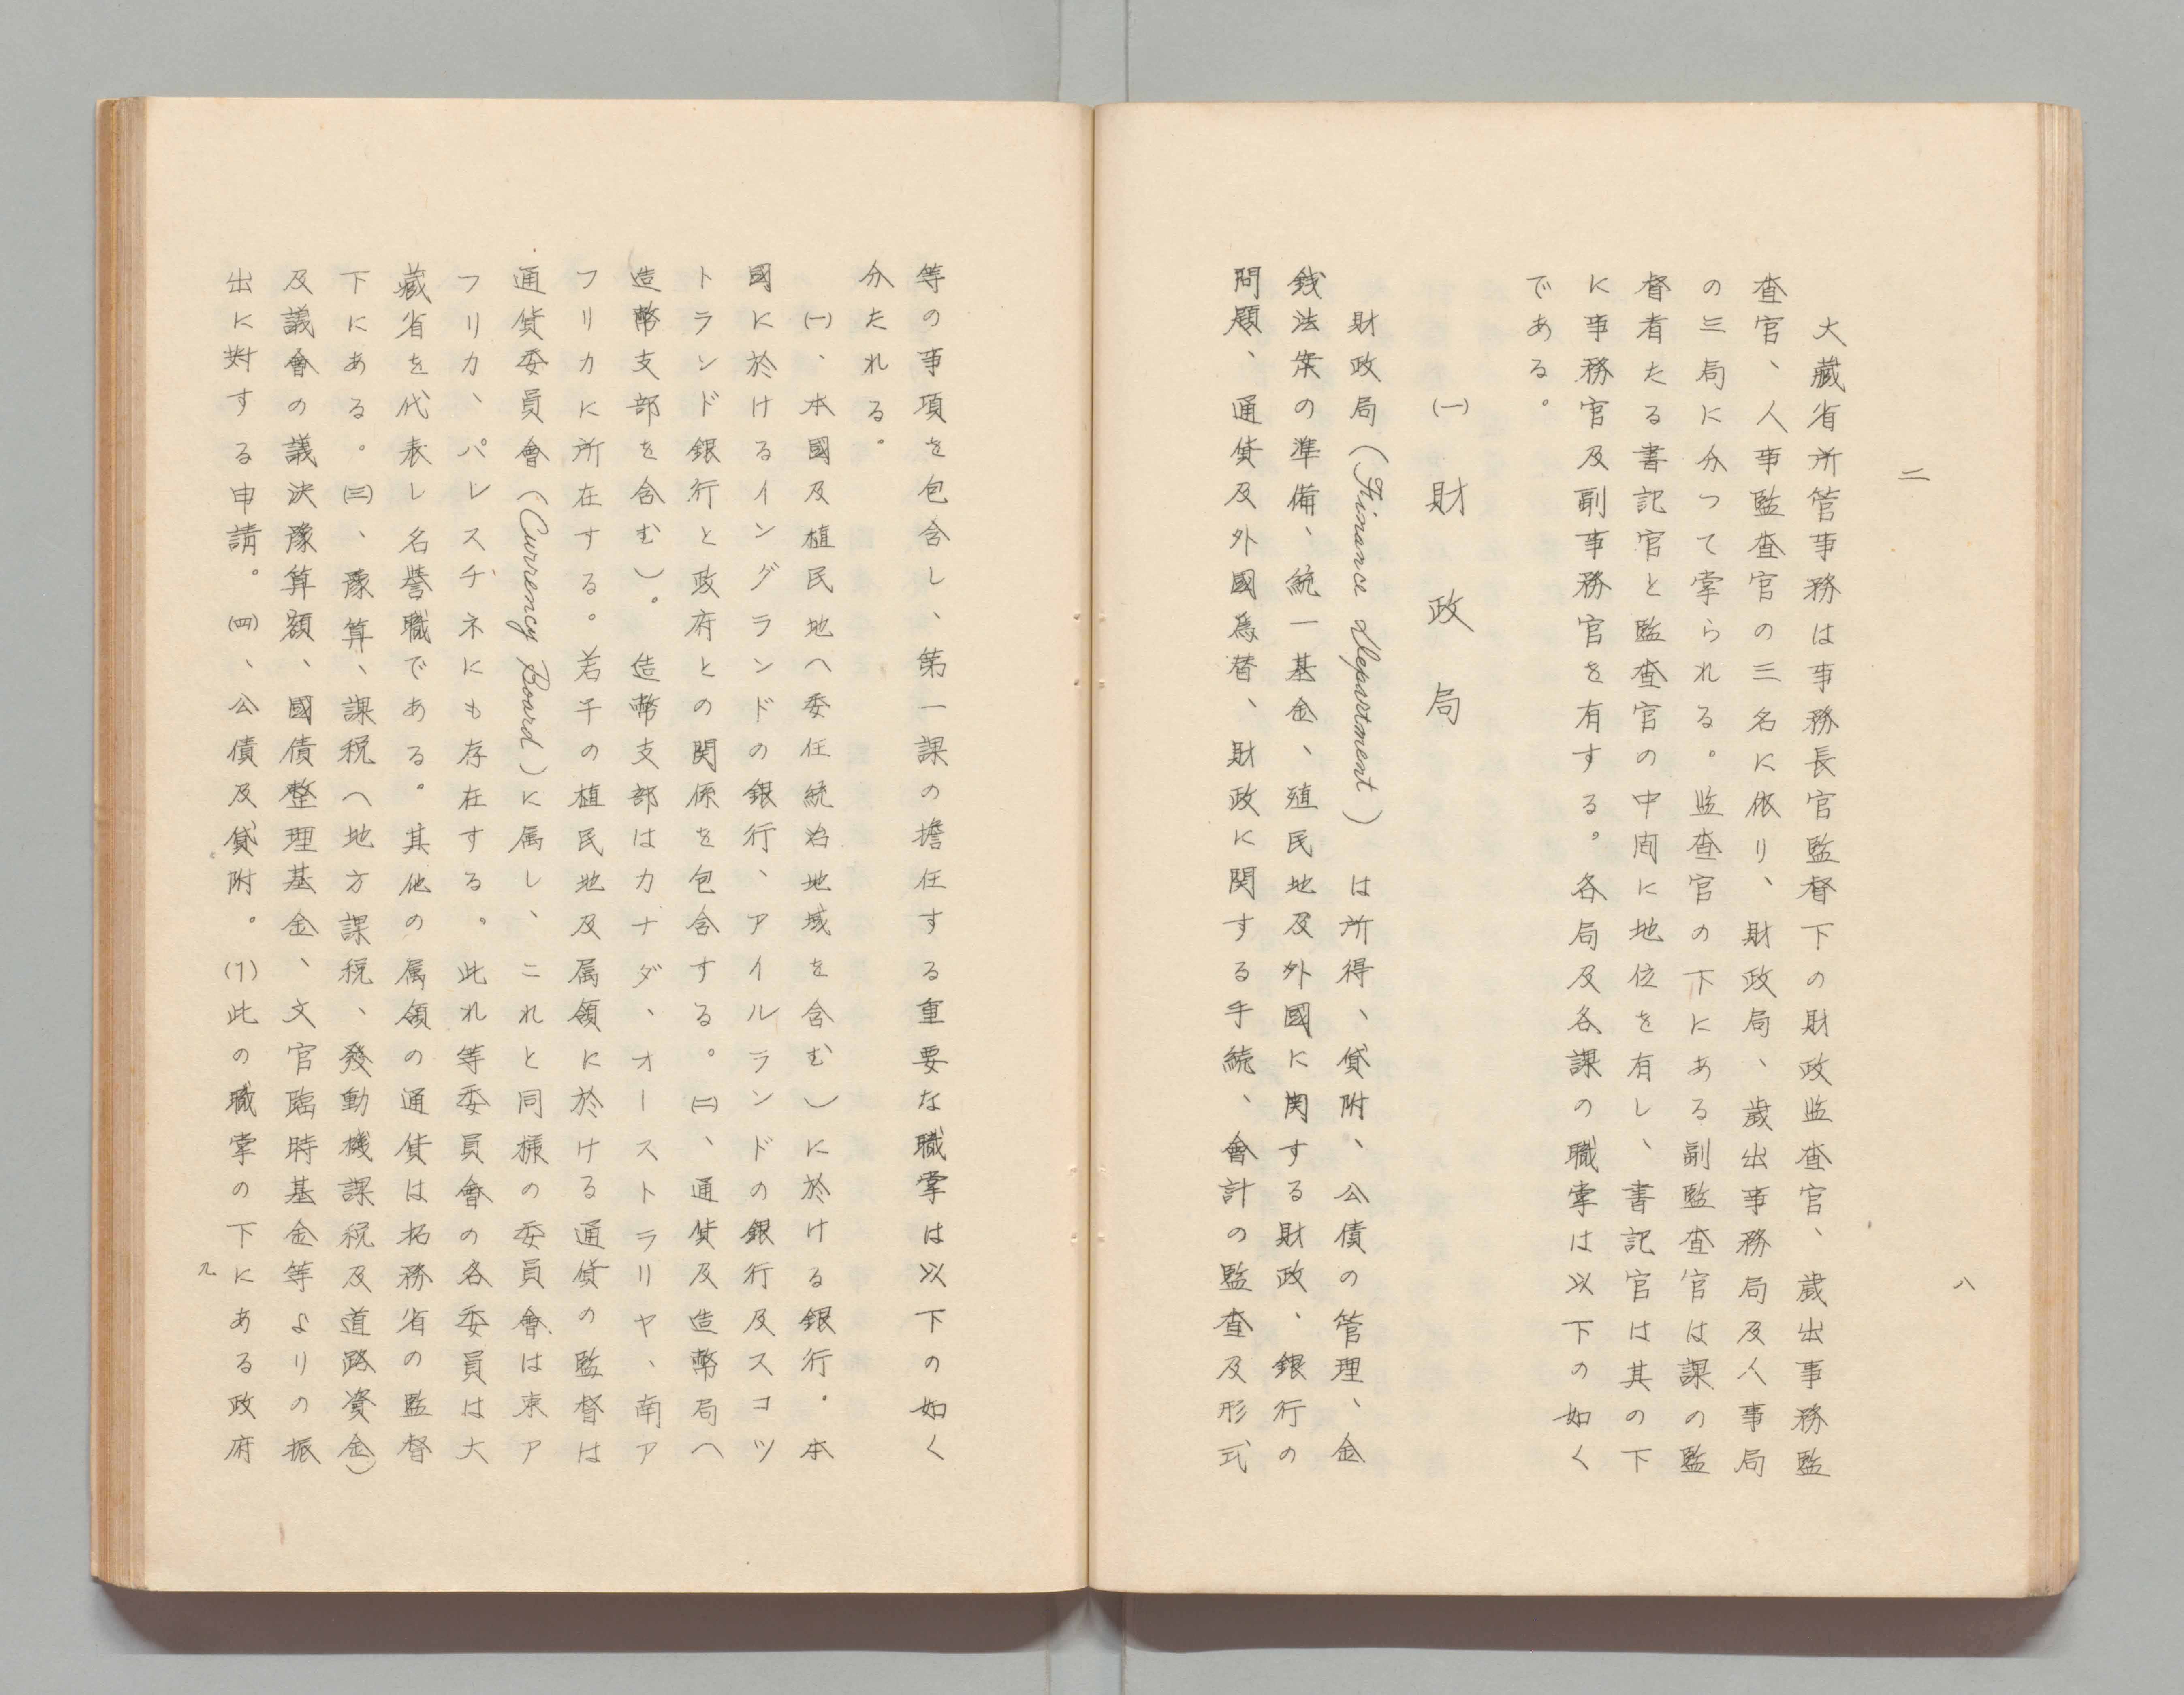 二
大藏省所管事務は事務長官監督下の財政監查官、歲出事務監
查官、人事監查官の三名に依り、財政局、歲出事務局及人事局
の三局に分つて掌られる。監查官の下にある副監查官は課の監
督者たる書記官と監查官の中间に地位を有し、書記官は其の下
に事務官及副事務官を有する。各局及各課の職掌は以下の如く
である。
㈠ 財政局
財政局(Finance Department)は所得、貸附、公債の管理、金
銭法案の準備、統一基金、殖民地及外國に関する財政、銀行の
問題、通貨及外國爲替、財政に関する手続、會計の監查及形式
八
等の事項を包含し、第一課の擔任する重要な職掌は以下の如く
分たれる。
㈠、本國及植民地へ委任統治地域を含む)に於ける銀行。本
國に於けるイングランドの銀行、アイルランドの銀行及スコツ
トランド銀行と政府との関係を包含する。㈡、通貨及造幣局へ
造幣支部を含む)。造幣支部はカナダ、オーストラリヤ、南ア
フリカに所在する。若干の植民地及属領に於ける通貨の監督は
通貨委員會(Currency Board)に属し、これと同様の委員會は東ア
フリカ、パレスチネにも存在する。此れ等委員會の各委員は大
藏省を代表し名譽職である。其他の属領の通貨は拓務省の監督
下にある。㈢、豫算、課税へ地方課税、發動機課税及道路資金)
及議會の議決豫算額、國債整理基金、文官臨時基金等よりの振
出に対する申請。㈣、公債及貸附。(1)此の職掌の下にある政府
九